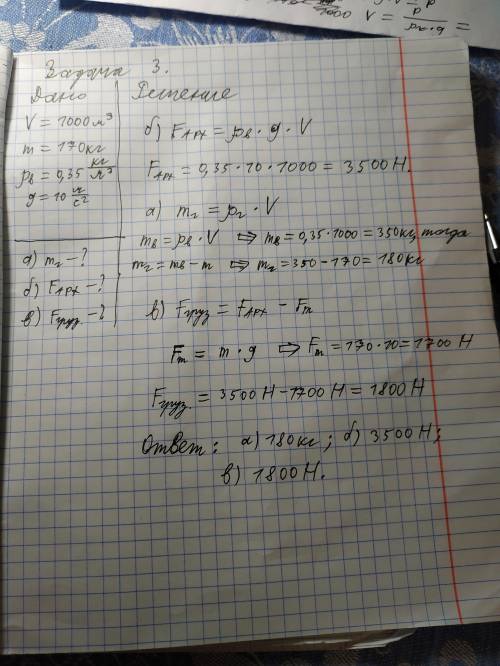 1000 V = р / ρв·g =
Задача 3.
Дано
V = 1000 м³
m = 170 кг
ρв = 0,35 кг/м³
g = 10 м/с²
а) mг – ?
б) Fарх – ?
в) Fгруз – ?
Решение
б) Fарх = ρв · g · V
Fарх = 0,35 · 10 · 1000 = 3500 Н.
а) mг = ρг · V
mв = ρв · V ⇒ mв = 0,35 · 1000 = 350 кг, тогда
mг = mв – m ⇒ mг = 350 – 170 = 180 кг
в) Fгруз = Fарх – Fт
Fт = m · g ⇒ Fт = 170 · 10 = 1700 Н
Fгруз. = 3500 Н – 1700 Н = 1800 Н
Ответ: а) 180 кг; б) 3500 Н;
в) 1800 Н.